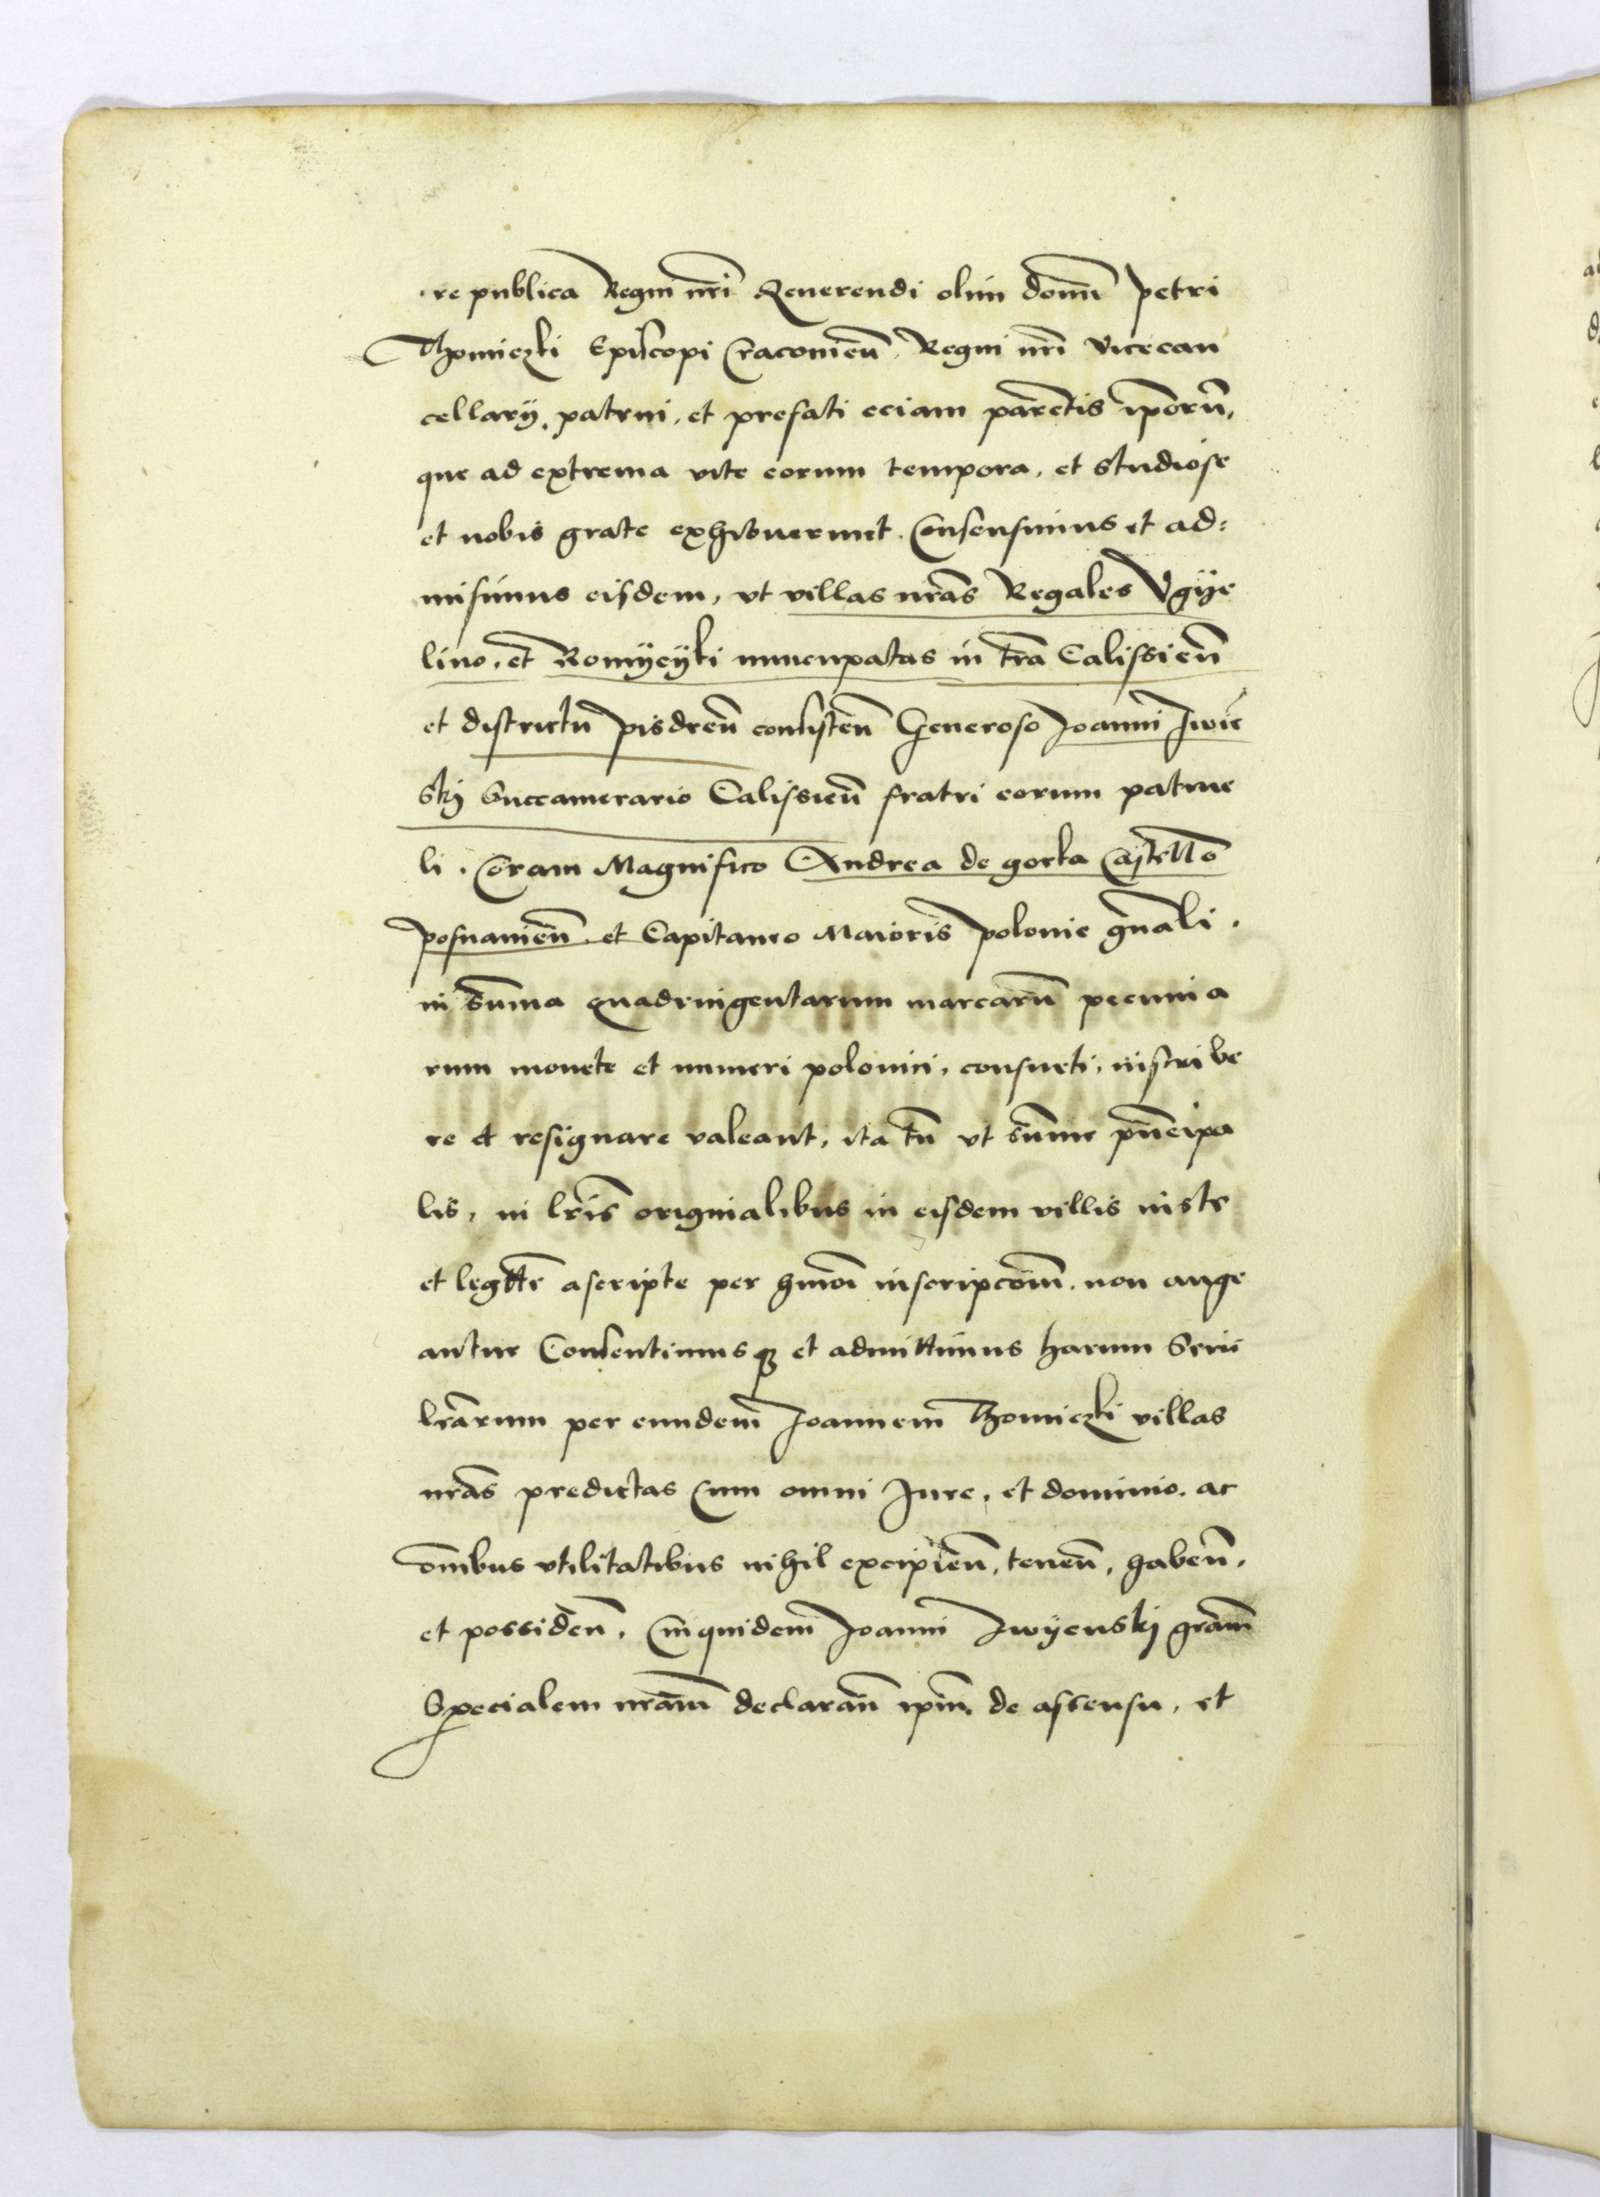 re publica Regni nr̄i Reuerendi olim domi͞ Petri
Thomiczki Ep̄iscopi Cracouien̄. Regni nr̄i Vicecan
cellarÿ, patrui, et prefati eciam parentis ip̄orū,
que ad extrema vite eorum tempora, et studiose
et nobis grate exhibuerunt. Consensimus et ad:
misimus eisdem, vt villas nr̄as Regales Vgÿe
lino, et Romÿeÿki nuncupatas in tr̄a Calissien̄
et districtu Pisdren̄ consisten̄ Generoso Joanni Zwie
skÿ Succamerario Calissien̄ fratri eorum patrue
li. Coram Magnifico Andrea de gorka Castell̄o
Posnanien̄ et Capitaneo Maioris Polonie gn̄ali.
in sum̄a quadringentarum marcarū pecunia
rum monete et numeri polonici, consueti, inscribe
re et resignare valeant, ita tn̄ vt sum̄e pn̄cipa
lis, in lr̄is originalibus in eisdem villis iuste
et legitt̄e ascripte per hm̄oi inscripcōm̄. non auge
antur Consentimusq̨ et admittimus harum Serie
lr̄arum per eundem̄ Joannem̄ Thomiczki villas
nr̄as predictas cum omni Jure, et dominio. ac
om̄ibus vtilitatibus nihil excipien̄, tenen̄, haben̄,
et possiden̄. Cuiquidem̄ Joanni Zwÿenskj gr̄am̄
Specialem nr̄am̄ declaran̄ ip̄m̄. de assensu, et